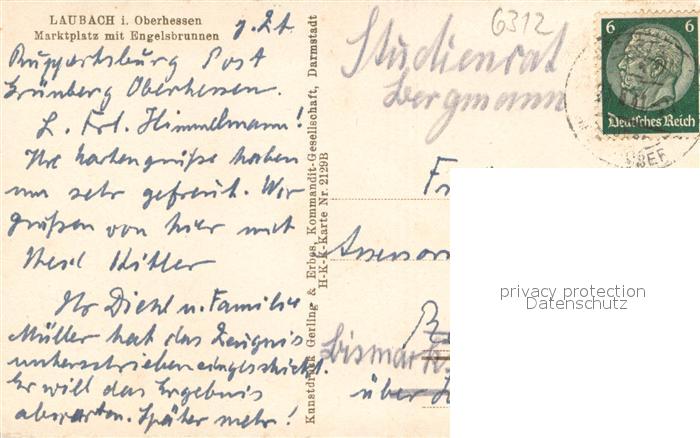 LAUBACH i. Oberhessen
Marktplatz mit Engelsbrunnen
z. Zt.
Ruppertsburg Post
Grünberg Oberhessen.
L. Frl. Himmelmann!
Ihre Kartengrüße haben
uns sehr gefreut. Wir
grüßen von hier mit
Heil Hitler
Hr Diehl u. Familie
Müller hat das Zeugnis
unterschrieben eingeschickt.
Er will das Ergebnis
abwarten. Später mehr!
Kunstdruck Gerling & Erbes, Kommandit-Gesellschaft, Darmstadt
H-K-K-Karte Nr. 2129B
6312
Studienrat
Bergmann
6 6
Deutsches Reich
Assessor
Bismarck
über
privacy protection
Datenschutz